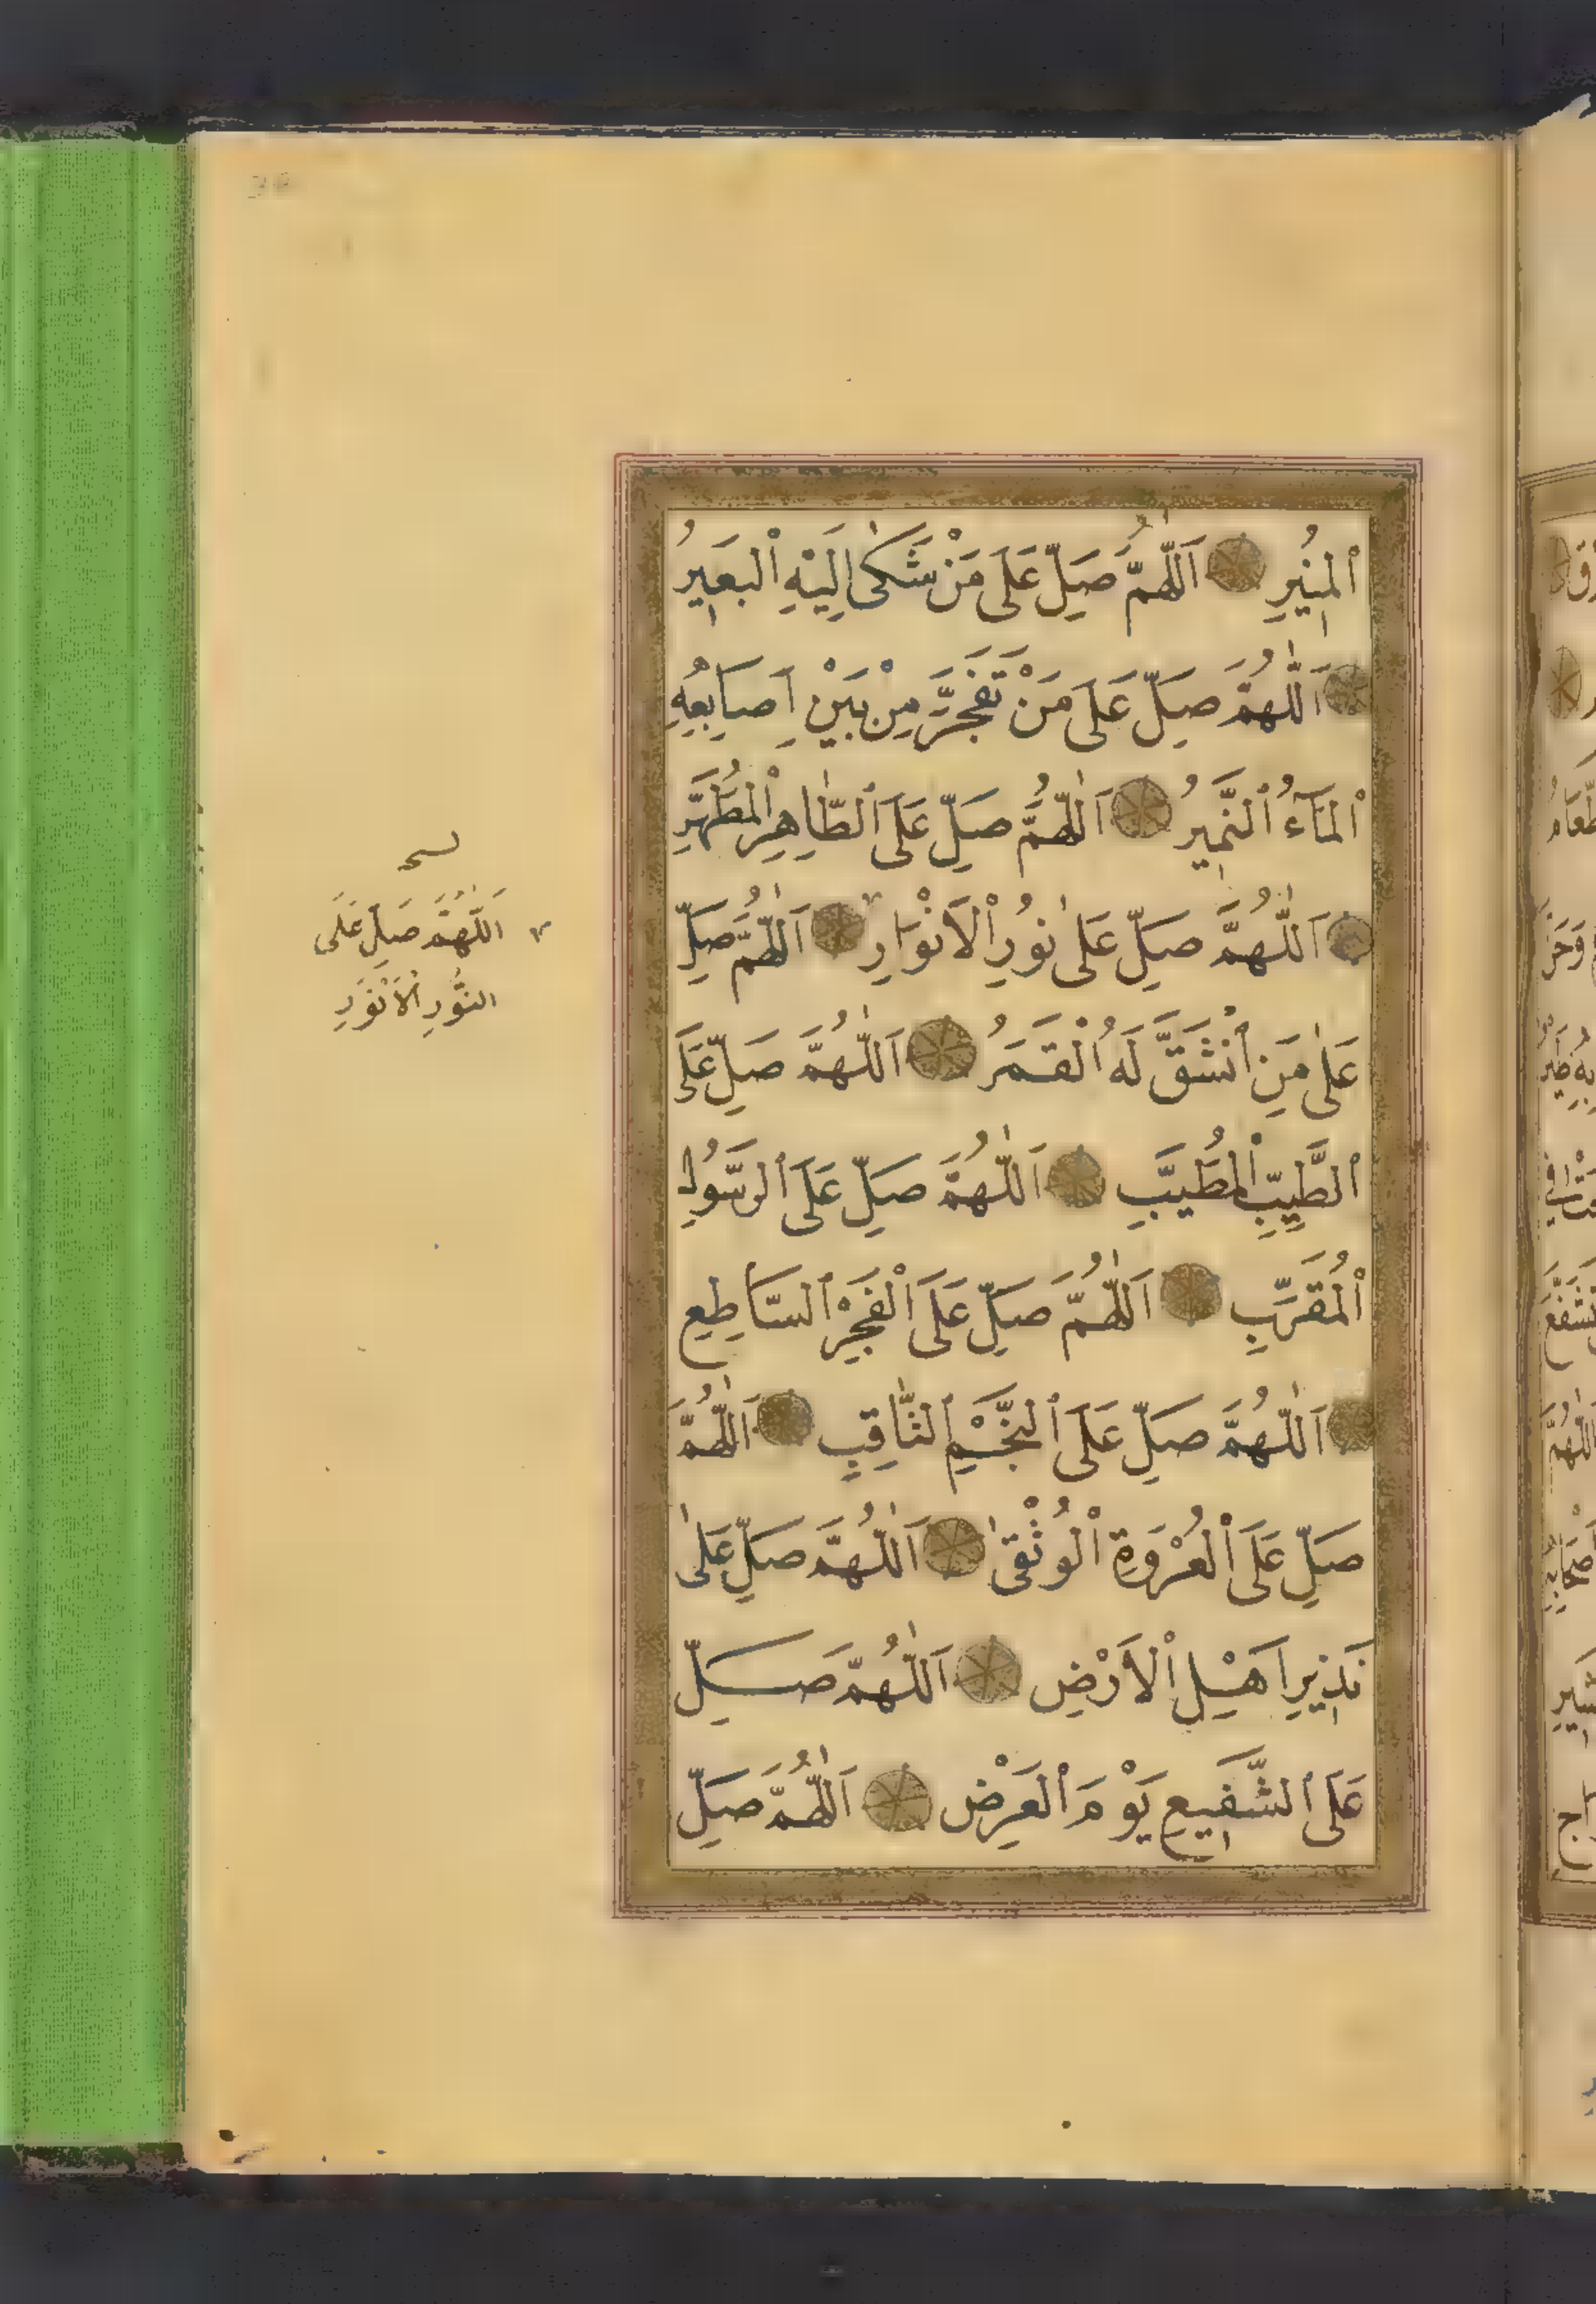 ٱلْمُنِيرِ اَللّٰهُمَّ صَلِّ عَلَى مَنْ شَكٰى اِلَيْهِ ٱلْبَعِيرُ
اَللّٰهُمَّ صَلِّ عَلَى مَنْ تَفَجَّرَ مِنْ بَيْنِ اَصَابِعِهِ
ٱلْمَآءُ ٱلنَّمِيرُ اَللّٰهُمَّ صَلِّ عَلَى ٱلطَّاهِرِ ٱلْمُطَهَّرِ
اَللّٰهُمَّ صَلِّ عَلٰى نُورِ ٱلْاَنْوَارِ اَللّٰهُمَّ صَلِّ
عَلٰى مَنِ ٱنْشَقَّ لَهُ ٱلْقَمَرُ اَللّٰهُمَّ صَلِّ عَلَى
ٱلطَّيِّبِ ٱلْمُطَيَّبِ اَللّٰهُمَّ صَلِّ عَلَى ٱلرَّسُولِ
ٱلْمُقَرَّبِ اَللّٰهُمَّ صَلِّ عَلَى ٱلْفَجْرِ ٱلسَّاطِعِ
اَللّٰهُمَّ صَلِّ عَلَى ٱلنَّجْمِ ٱلثَّاقِبِ اَللّٰهُمَّ
صَلِّ عَلَى ٱلْعُرْوَةِ ٱلْوُثْقٰى اَللّٰهُمَّ صَلِّ عَلٰى
نَذِيرِ اَهْلِ ٱلْاَرْضِ اَللّٰهُمَّ صَلِّ
عَلَى ٱلشَّفِيعِ يَوْمَ ٱلْعَرْضِ اَللّٰهُمَّ صَلِّ
اَللّٰهُمَّ صَلِّ عَلَى
النُّورِ الْاَنْوَرِ